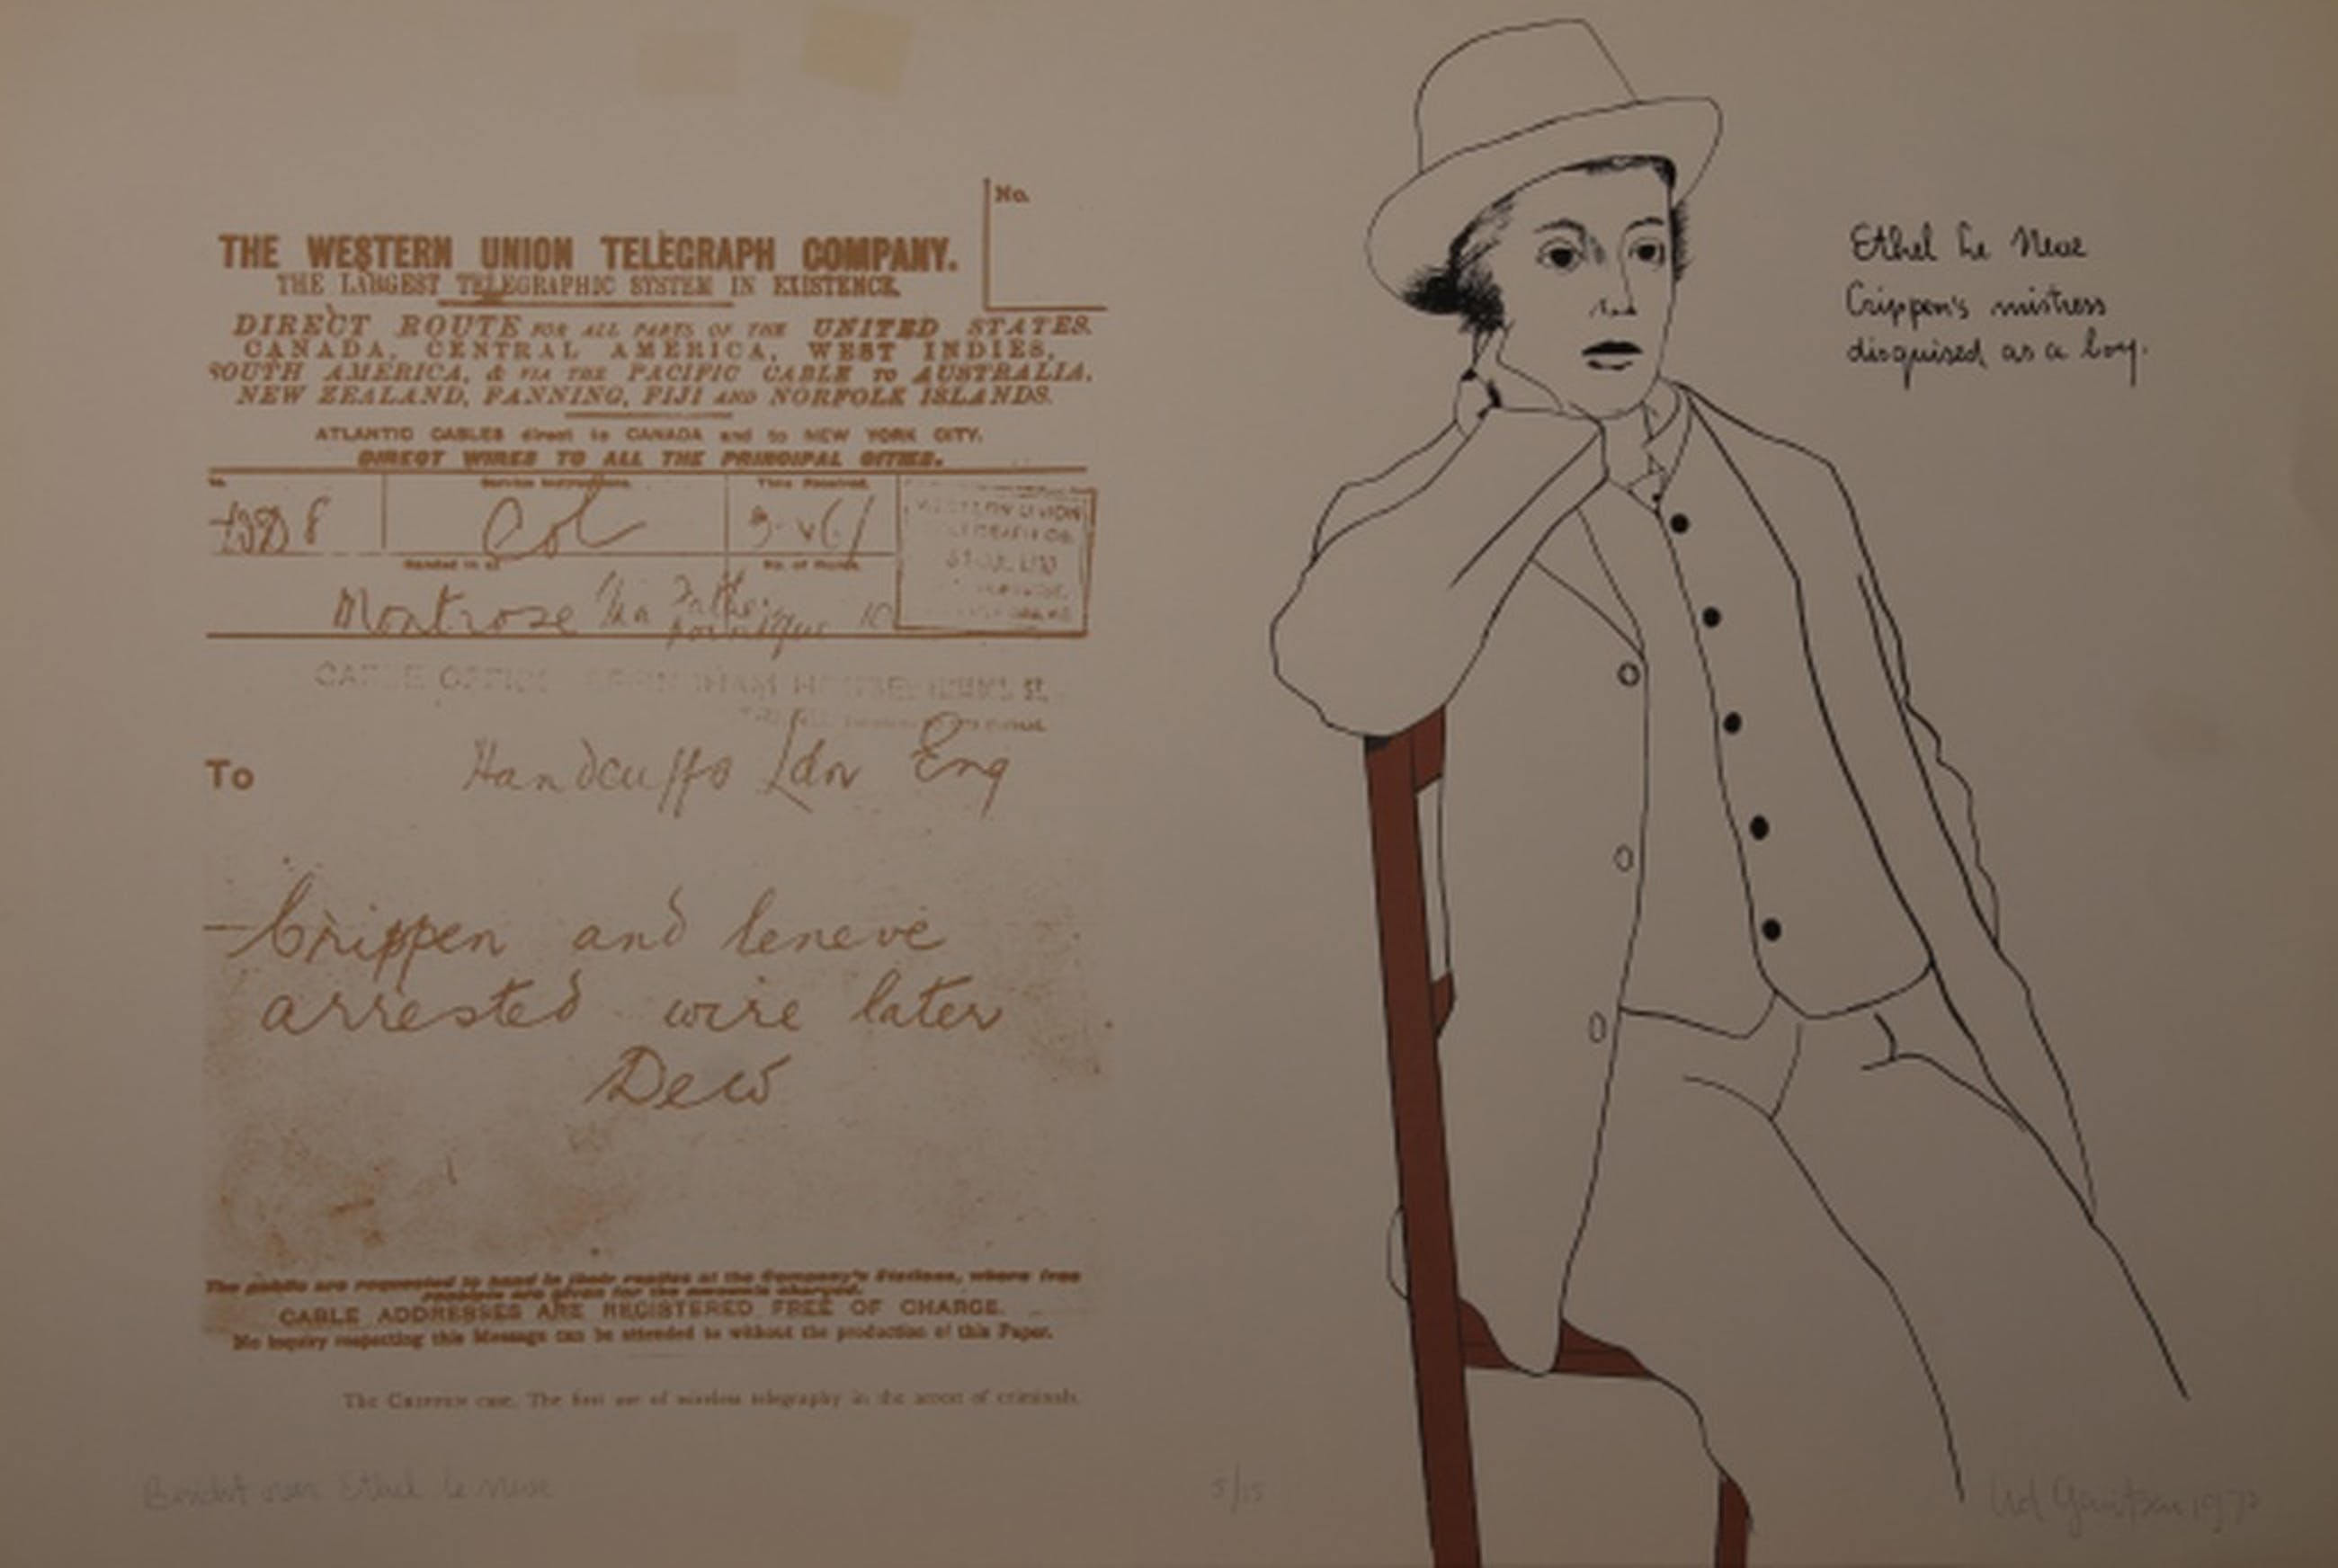 No.
THE WESTERN UNION TELEGRAPH COMPANY.
THE LARGEST TELEGRAPHIC SYSTEM IN EXISTENCE.
DIRECT ROUTE FOR ALL PARTS OF THE UNITED STATES.
CANADA, CENTRAL AMERICA, WEST INDIES,
SOUTH AMERICA, & VIA THE PACIFIC CABLE TO AUSTRALIA,
NEW ZEALAND, FANNING, FIJI AND NORFOLK ISLANDS.
ATLANTIC CABLES direct to CANADA and to NEW YORK CITY.
DIRECT WIRES TO ALL THE PRINCIPAL CITIES.
Service Instructions. Time Received.
Col
WESTERN UNION
Handed in at No. of Words.
Montrose 10
CABLE OFFICE
To Handcuffs Ldn Eng
Crippen and leneve
arrested wire later
Dew
The public are requested to hand in their replies at the Company's Stations, where free
receipts are given for the amounts charged.
CABLE ADDRESSES ARE REGISTERED FREE OF CHARGE.
No inquiry respecting this Message can be attended to without the production of this Paper.
The Crippen case. The first use of wireless telegraphy in the arrest of criminals.
Ethel Le Neve
Crippen's mistress
disguised as a boy.
Bericht over Ethel Le Neve
5/15